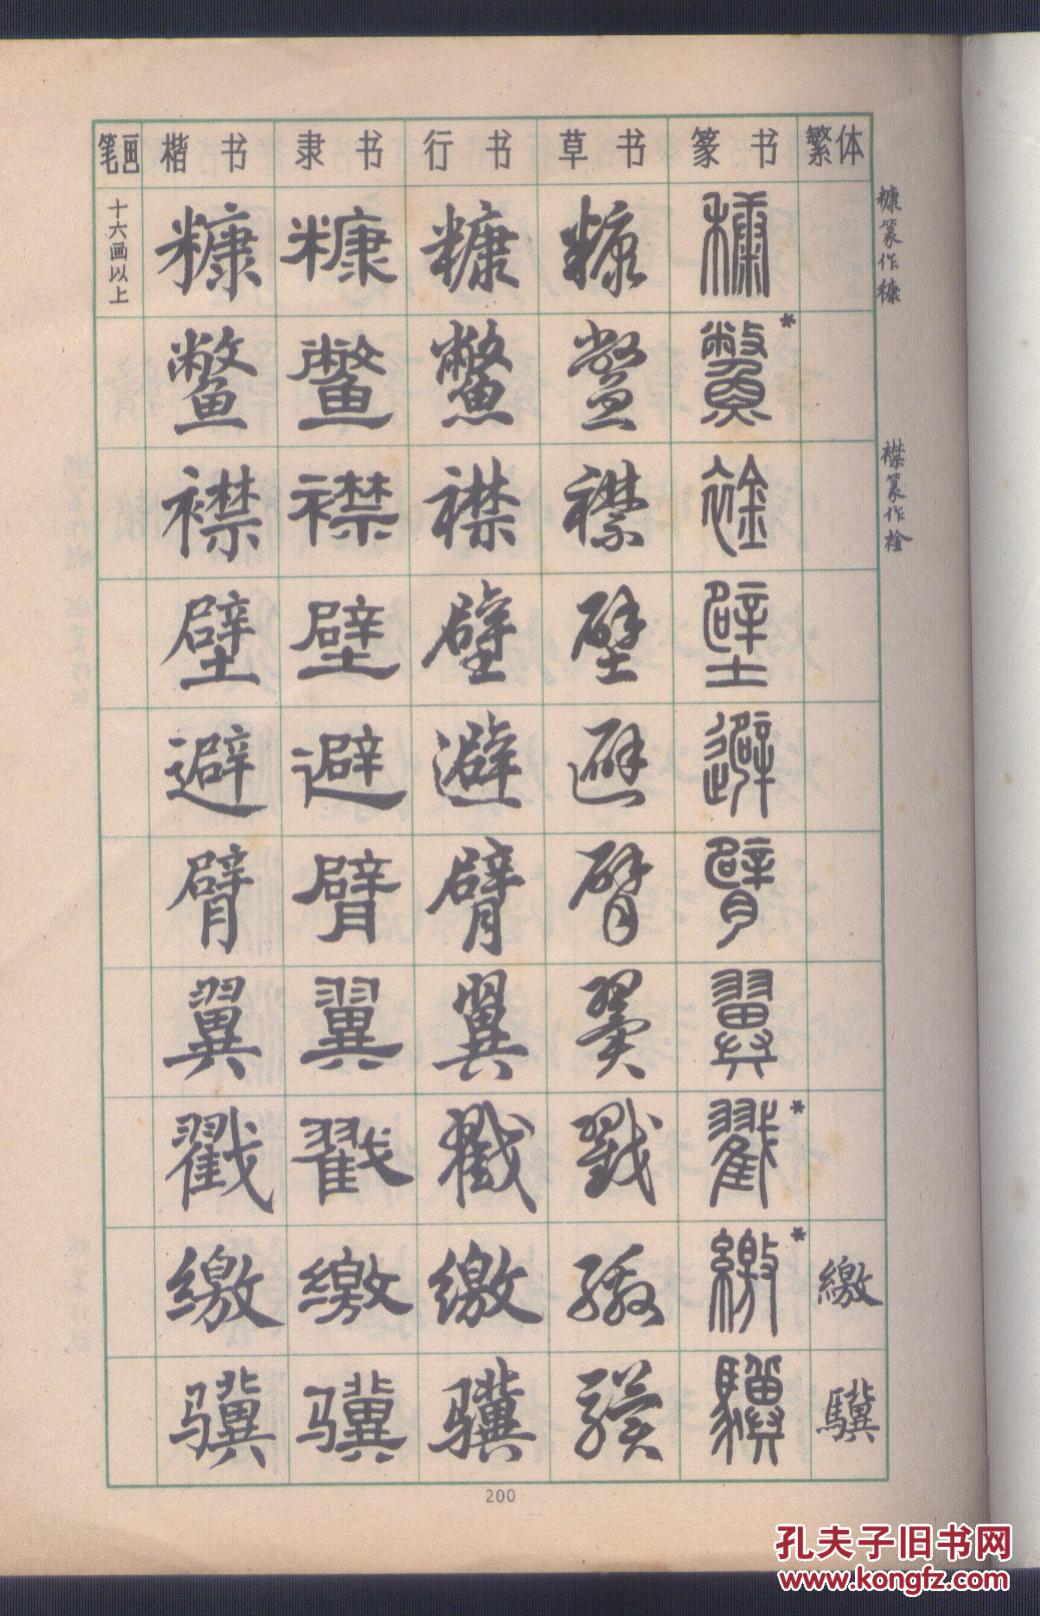 笔画 楷书 隶书 行书 草书 篆书 繁体
十六画以上 糠 糠 糠 糠 糠 糠篆作穅
鳖 鳖 鳖 鳖 鳖*
襟 襟 襟 襟 襟 襟篆作𬡓
壁 壁 壁 壁 壁
避 避 避 避 避
臂 臂 臂 臂 臂
翼 翼 翼 翼 翼
戳 戳 戳 戳 戳*
缴 缴 缴 缴 繳* 繳
骥 骥 骥 骥 驥 驥
200
孔夫子旧书网
www.kongfz.com